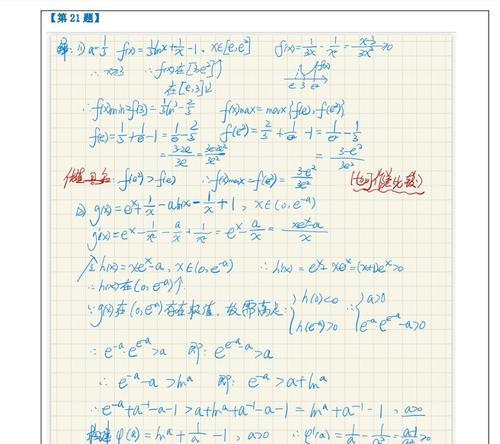 【第 21 题】
解: (1) a=1/3 f(x)=1/3lnx+1/x-1, x∈[e,e²] f'(x)=1/3x-1/x²=x-3/3x²>0
∴x>3 ∴f(x)在[3,e²]↑
在[e,3]↓ e 3 e²
∴f(x)min=f(3)=1/3ln3-2/3 f(x)max=max{f(e),f(e²)}
f(e)=1/3+1/e-1=1/e-2/3 f(e²)=2/3+1/e²-1=1/e²-1/3
=3-2e/3e =3-e²/3e²
f(e²)>f(e) ∴f(x)max=f(e²)=3-e²/3e²
(2) g(x)=e^x+1/x-alnx-1/x+1, x∈(0,e^-a)
g'(x)=e^x-1/x²-a/x+1/x²=e^x-a/x=xe^x-a/x
令h(x)=xe^x-a, x∈(0,e^-a) ∴h'(x)=e^x+xe^x=(x+1)e^x>0
∴h(x)在(0,e^-a)↑
∵g(x)在(0,e^-a)存在极值, 故需满足: {h(0)<0 h(e^-a)>0 ∴{a>0 e^-a·e^e^-a-a>0
∴e^-a·e^e^-a>a 即: e^e^-a-a>a
∴e^-a-a>lna 即: e^-a>a+lna
∴e^-a+a^-1-a-1>a+lna+a^-1-a-1=lna+a^-1-1, a>0
构建φ(a)=lna+1/a-1, a>0 ∴φ'(a)=1/a-1/a²=a-1/a²>0